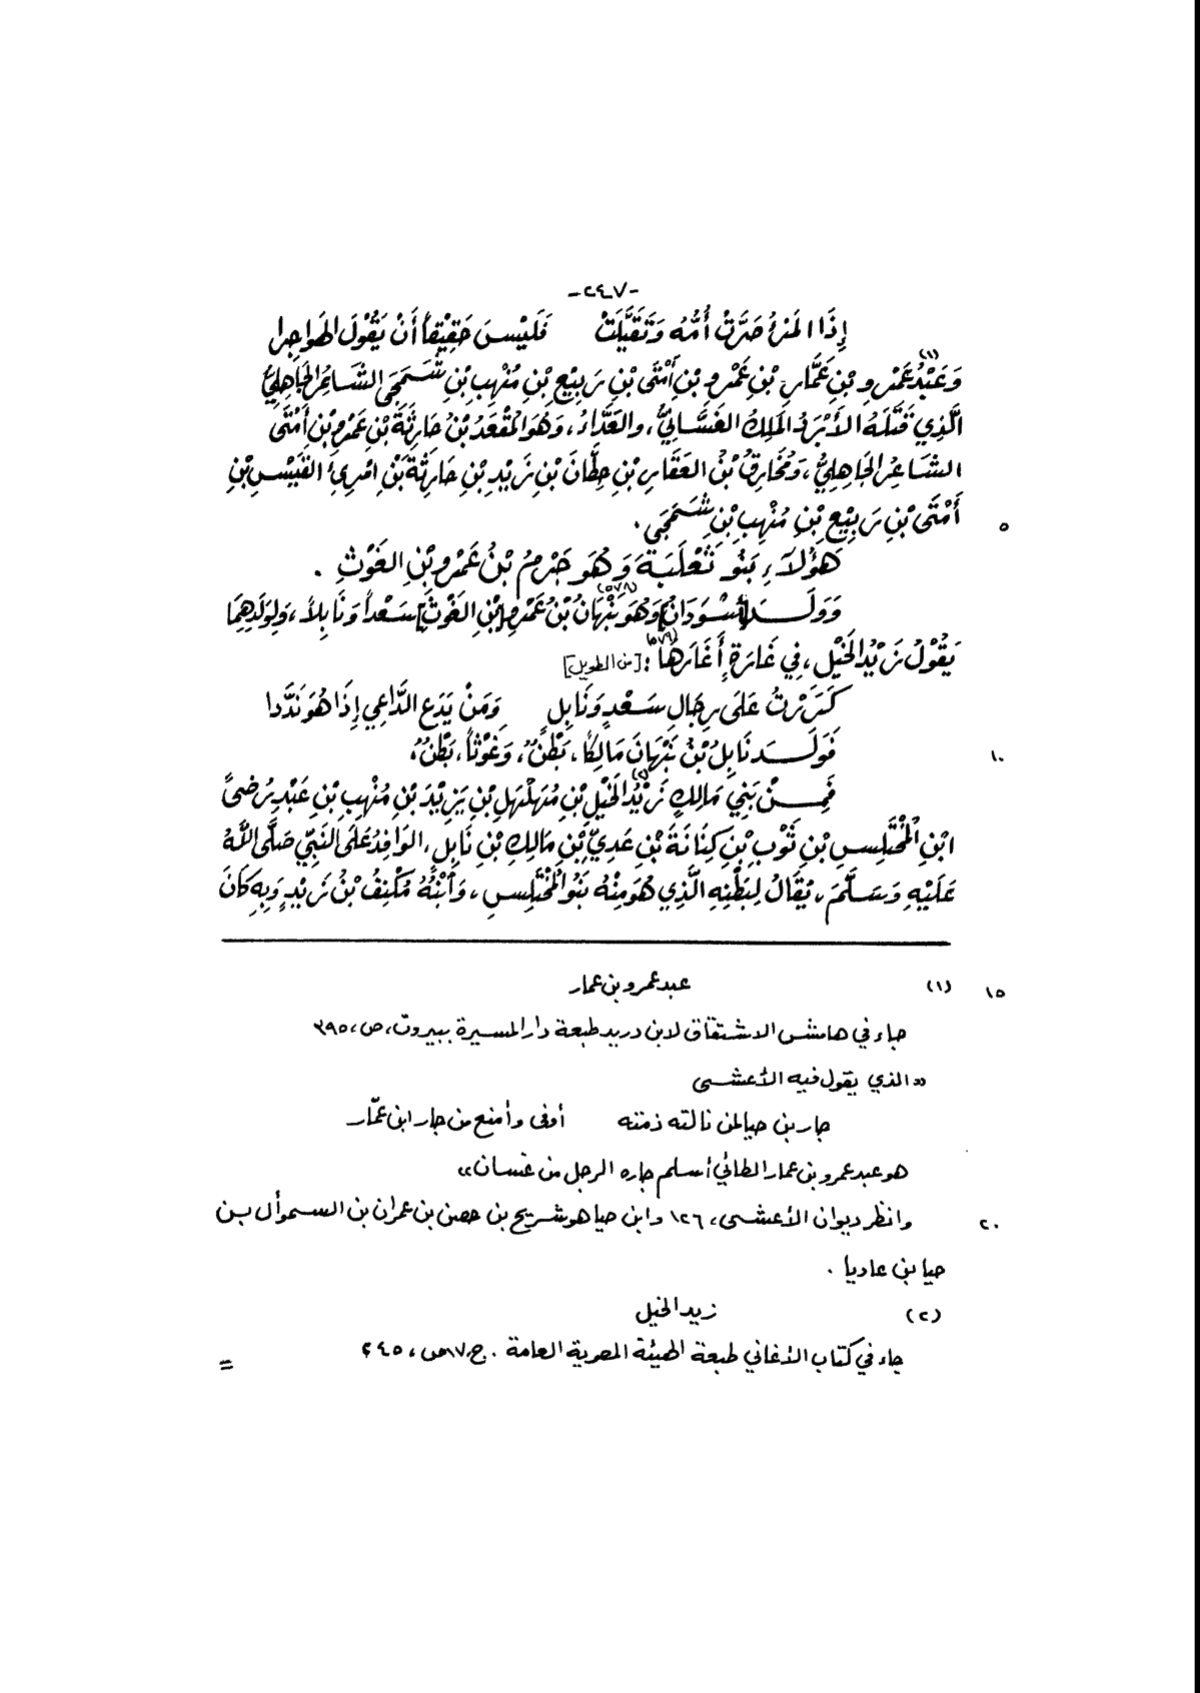 -٢٤٧-
إِذَا المَرْءُ صَرَّتْ أُمُّهُ وَتَقَيَّلَتْ فَلَيْسَ حَقِيْقاً أَنْ يَقُوْلَ الهَوَاجِرا
وَعَبْدُ عَمْرِو(١) بْنِ عَمَّارِ بْنِ عَمْرِو بْنِ أَمْتَى بْنِ رَبِيْعِ بْنِ مُنْهِبِ بْنِ شَمَجَى الشَّاعِرُ الجَاهِلِيُّ
الَّذِي قَتَلَهُ الأَبْرَدُ المَلِكُ الغَسَّانِيُّ، والعَدَّاءُ، وَهُوَ المُقْعَدُ بْنُ حَارِثَةَ بْنِ عَمْرِو بْنِ أَمْتَى
الشَّاعِرُ الجَاهِلِيُّ، وَمُخَارِقُ بْنُ العَقَارِ بْنِ حِطَّانَ بْنِ زَيْدِ بْنِ حَارِثَةَ بْنِ امْرِئِ القَيْسِ بْنِ
أَمْتَى بْنِ رَبِيْعِ بْنِ مُنْهِبِ بْنِ شَمَجَى . ٥
هَؤُلاَءِ بَنُو ثَعْلَبَةَ وَهُوَ جَرْمُ بْنُ عَمْرِو بْنِ الغَوْثِ .
وَوَلَدَ [أَسْوَدَانُ] وَهُوَ نَبْهَانُ(٥٧٨) بْنُ عَمْرِو [بْنِ الغَوْثِ] سَعْداً وَنَابِلاً، وَلِوَلَدِهِمَا
يَقُوْلُ زَيْدُ الخَيْلِ، فِي غَارَةٍ أَغَارَهَا(٥٧٩): [من الطويل]
كَرَرْتُ عَلَى رِجَالِ سَعْدٍ وَنَابِلٍ وَمَنْ يَدَعِ الدَّاعِي إِذَا هُوَ نَدَّدا
فَوَلَدَ نَابِلُ بْنُ نَبْهَانَ مَالِكاً، بَطْنٌ، وَغَوْثاً، بَطْنٌ، ١٠
فَمِنْ بَنِي مَالِكٍ زَيْدُ الخَيْلِ(٢) بْنِ مُهَلْهِلِ بْنِ يَزِيْدَ بْنِ مُنْهِبِ بْنِ عَبْدِ رُضَىً
ابْنِ المُخْتَلِسِ بْنِ ثَوْبِ بْنِ كِنَانَةَ بْنِ عَدِيِّ بْنِ مَالِكِ بْنِ نَابِلٍ، الوَافِدُ عَلَى النَّبِيِّ صَلَّى اللَّهُ
عَلَيْهِ وَسَلَّمَ، يُقَالُ لِبَطْنِهِ الَّذِي هُوَ مِنْهُ بَنُو المُخْتَلِسِ، وَابْنُهُ مُكْنِفُ بْنُ زَيْدٍ وَبِهِ كَانَ
(١) عبد عمرو بن عمار ١٥
جاء في هامش الاشتقاق لابن دريد طبعة دار المسيرة ببيروت، ص، ٣٩٥
«الذي يقول فيه الأعشى
جار بن حيا لمن نالته ذمته أوفى وأمنع من جار ابن عمّار
هو عبد عمرو بن عمار الطائي أسلم جاره الرجل من غسان»
وانظر ديوان الأعشى، ١٢٦ وابن حيا هو شريح بن حصن بن عمران بن السموأل بن ٢٠
حيا بن عاديا .
(٢) زيد الخيل
جاء في كتاب الأغاني طبعة الهيئة المصرية العامة . ج، ١٧ ص، ٢٤٥ =